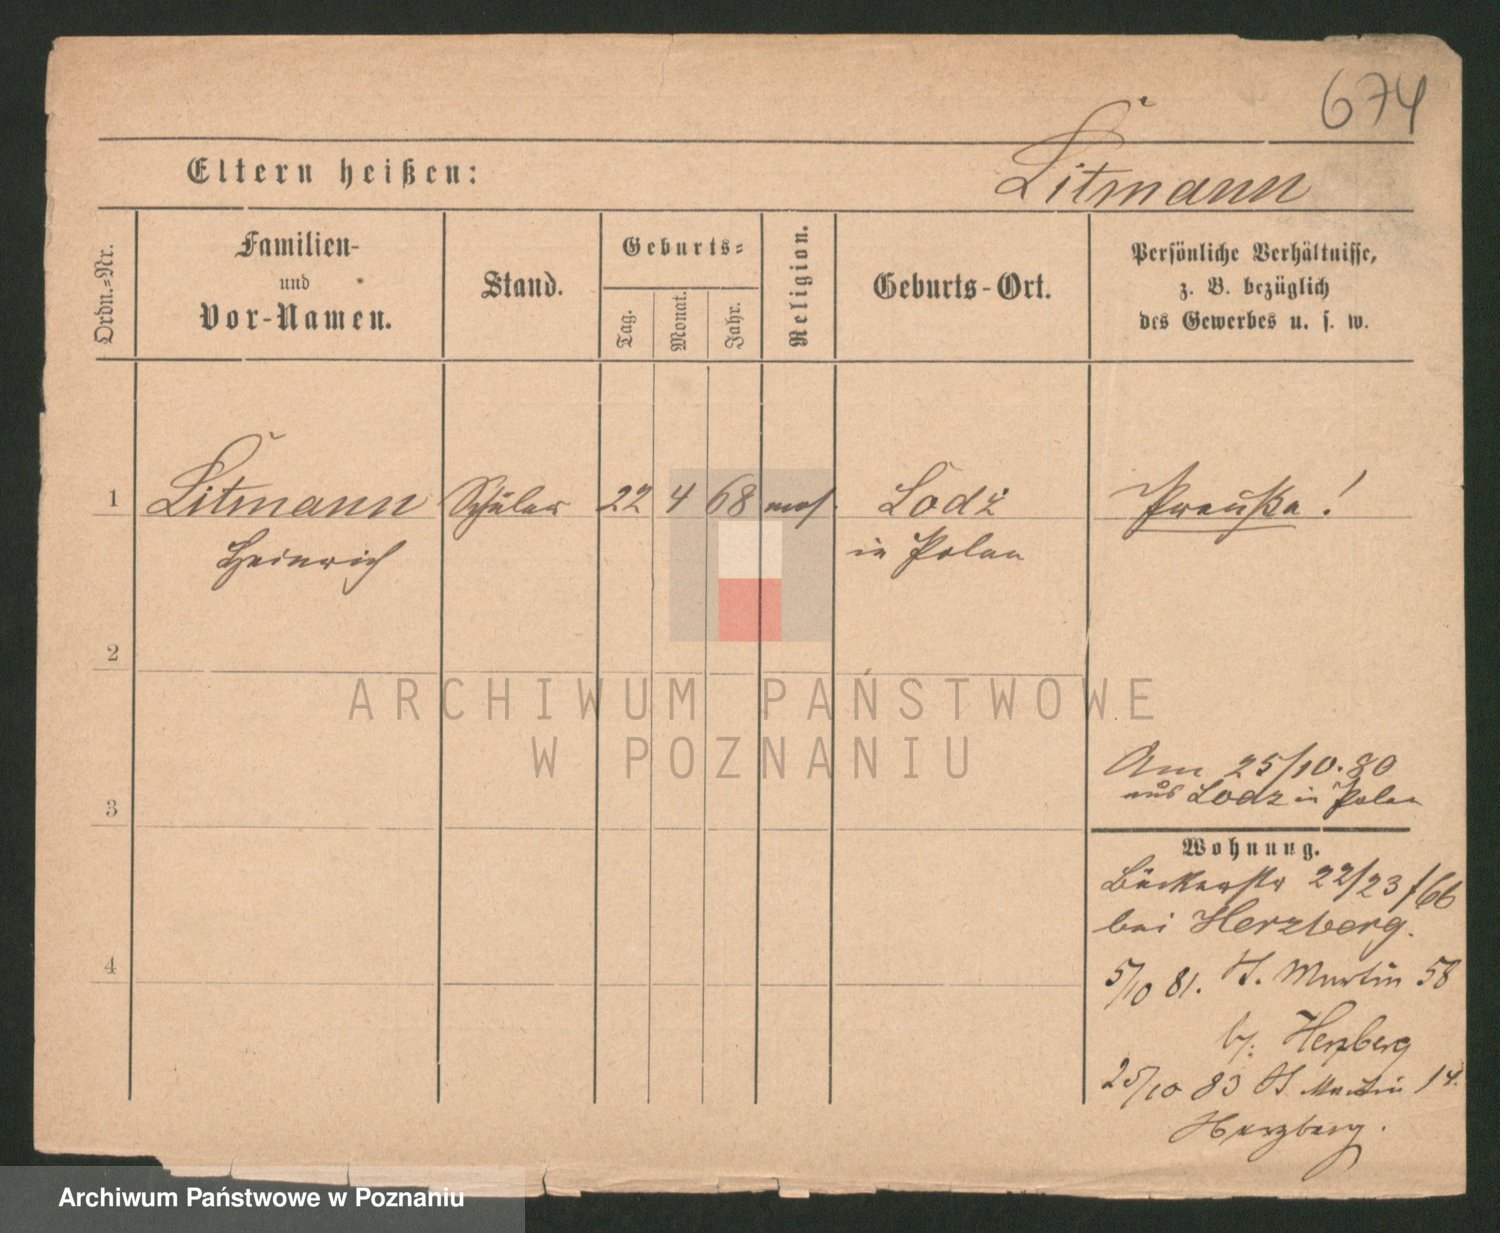 674
Eltern heißen:
Litmann
Ordn.=Nr.
Familien-
und
Vor-Namen.
Stand.
Geburts=
Tag.
Monat.
Jahr.
Religion.
Geburts-Ort.
Persönliche Verhältnisse,
z. B. bezüglich
des Gewerbes u. s. w.
1 Litmann Schüler 22 4 68 mos. Lodz Preuße!
Heinrich in Polen
2
ARCHIWUM PAŃSTWOWE
W POZNANIU
Am 25/10.80
aus Lodz in Polen
3
Wohnung.
Bäckerstr 22/23 /66
bei Herzberg.
4
5/10 81. St. Martin 58
b/: Herzberg
25/10 83 St. Martin 14.
Herzberg.
Archiwum Państwowe w Poznaniu